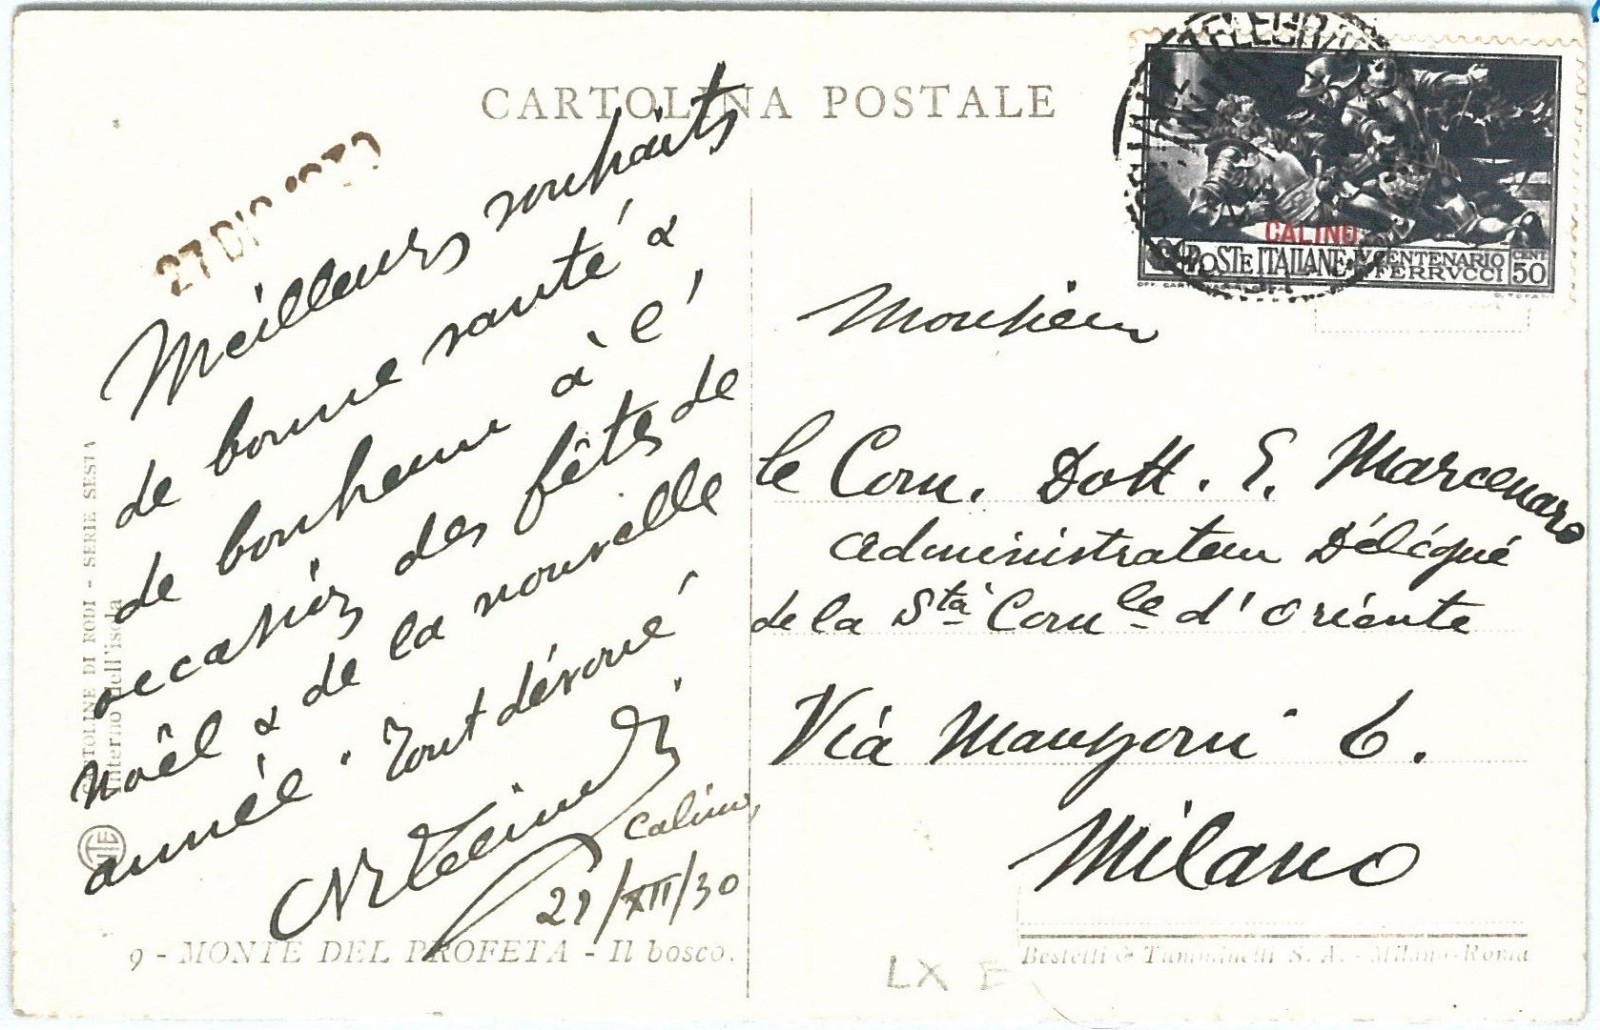 CARTOLINA POSTALE
27 DIC 1930
Meilleurs souhaits
de bonne santé &
de bonheur à l'
occasion des fêtes de
Noêl & de la nouvelle
année. Tout dévoué
Calino,
21/XII/30
CARTOLINE DI RODI - SERIE SESTA
Interno dell'isola
9 - MONTE DEL PROFETA - Il bosco.
CALINO
POSTE ITALIANE
IV CENTENARIO
FERRVCCI
CENT
50
Monsieur
le Com. Dott. E. Marcenaro
administrateur Délégué
de la Stà Comle d'Oriente
Via Manzoni 6.
Milano
Bestetti & Tumminelli S. A. - Milano-Roma
LX E